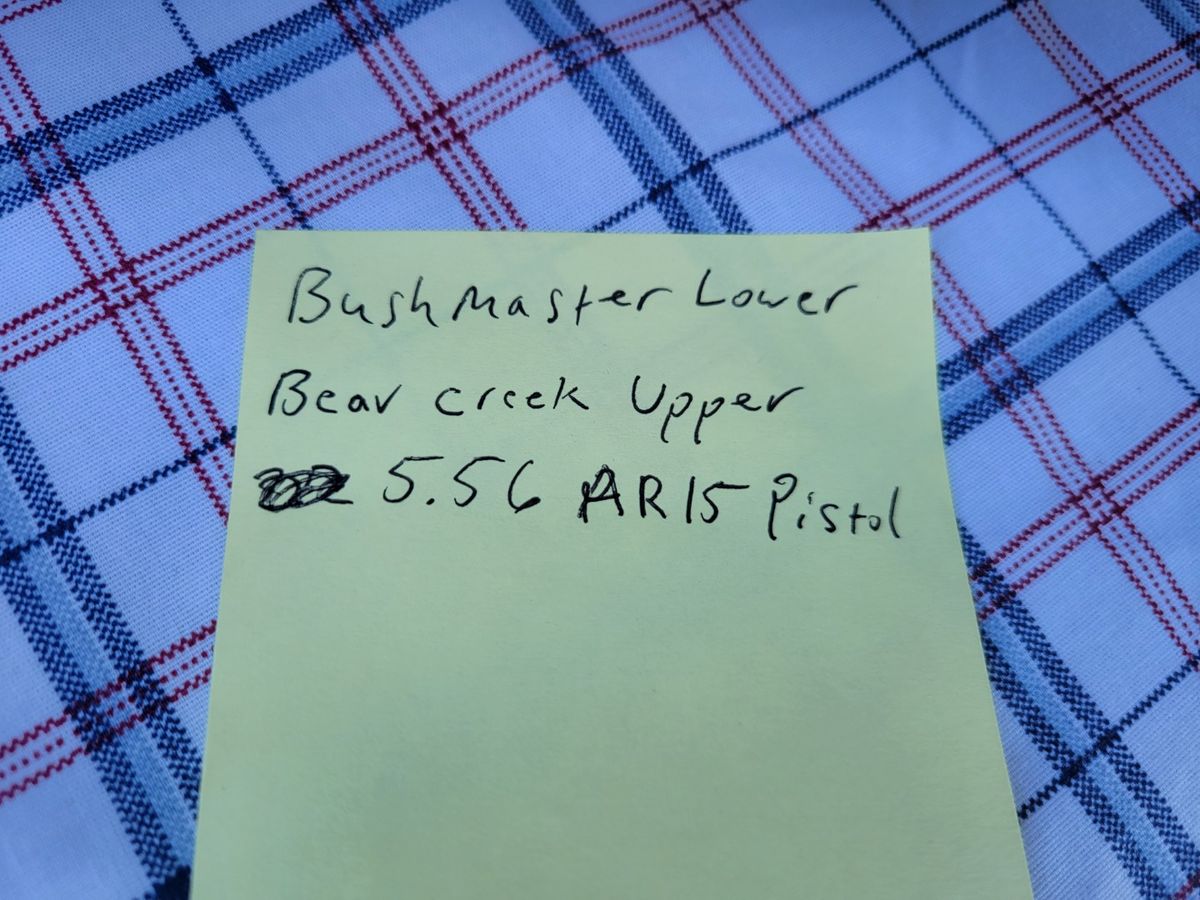 Bushmaster Lower
Bear creek Upper
5.56 AR15 Pistol